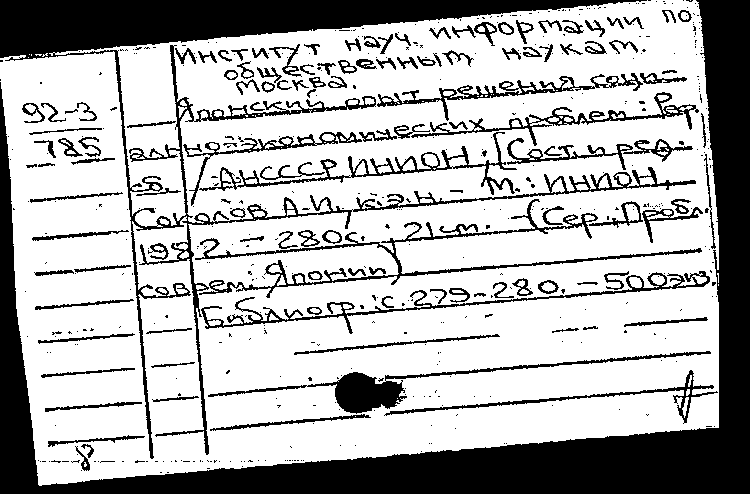 Институт науч. информации по
общественным наукам.
Москва.
92-3
785
Японский опыт решения соци-
ально-экономических проблем: Реф.
сб. / АНСССР, ИНИОН; [Сост. и ред.:
Соколов А.И., к.э.н. - М.: ИНИОН,
1982. - 280с.; 21см. - (Сер.: Пробл.
соврем. Японии)
Библиогр.: с. 279-280. - 500экз.
8